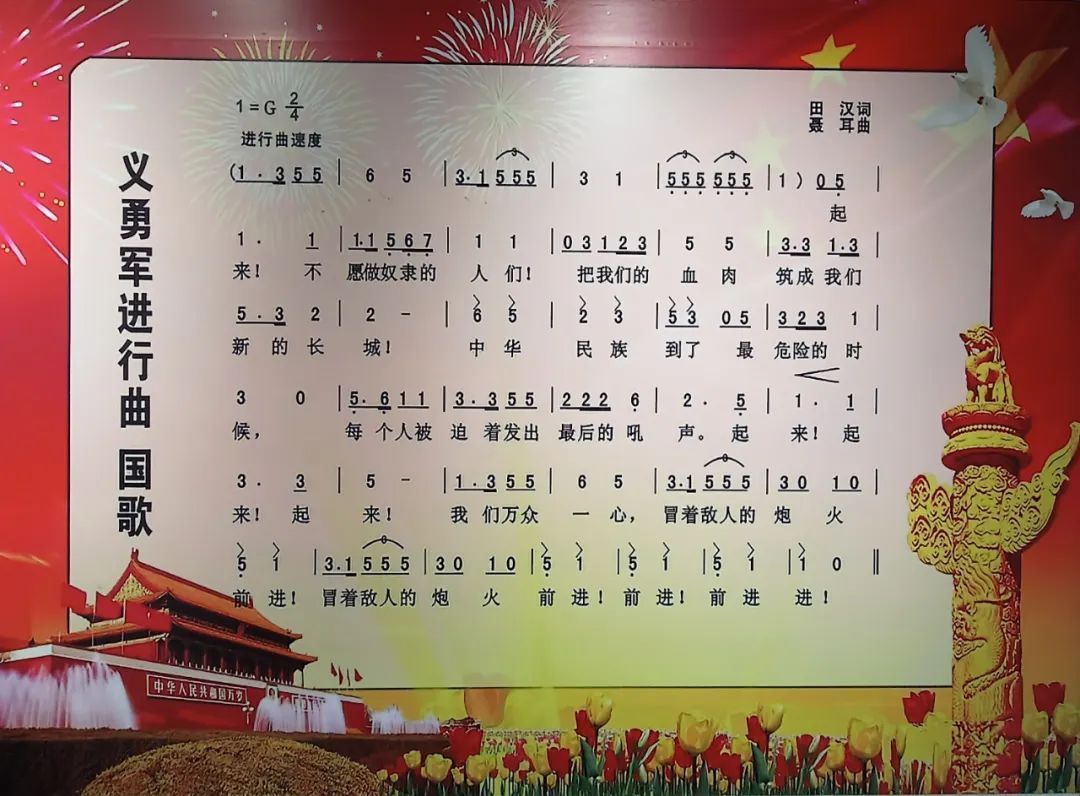 义勇军进行曲 国歌
1=G 2/4
田 汉词
聂 耳曲
进行曲速度
(1·3 5 5 | 6 5 | 3·1 5 5 5 | 3 1 | 5 5 5 5 5 5 | 1) 0 5 |
起
1· 1 | 1·1 5 6 7 | 1 1 | 0 3 1 2 3 | 5 5 | 3·3 1·3 |
来! 不 愿做奴隶的 人 们! 把我们的 血 肉 筑成 我们
5·3 2 | 2 - | 6 5 | 2 3 | 5 3 0 5 | 3 2 3 1 |
新 的 长 城! 中 华 民 族 到了 最 危险的 时
3 0 | 5·6 1 1 | 3·3 5 5 | 2 2 2 6 | 2· 5 | 1· 1 |
候, 每 个人被 迫 着发出 最后的 吼 声。 起 来! 起
3· 3 | 5 - | 1·3 5 5 | 6 5 | 3·1 5 5 5 | 3 0 1 0 |
来! 起 来! 我 们万众 一 心, 冒着敌人的 炮 火
5 1 | 3·1 5 5 5 | 3 0 1 0 | 5 1 | 5 1 | 5 1 | 1 0 ‖
前 进! 冒着敌人的 炮 火 前 进! 前 进! 前 进 进!
中华人民共和国万岁